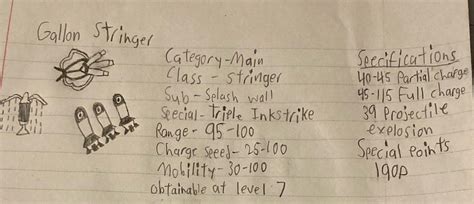 Gallon Stringer
Category-Main
Class - Stringer
Sub - Splash wall
Special- Triple Inkstrike
Range - 95-100
Charge Speed - 25-100
Mobility - 30-100
obtainable at level 7
Specifications
40-45 Partial charge
45-115 Full charge
39 Projectile
explosion
Special Points
190p